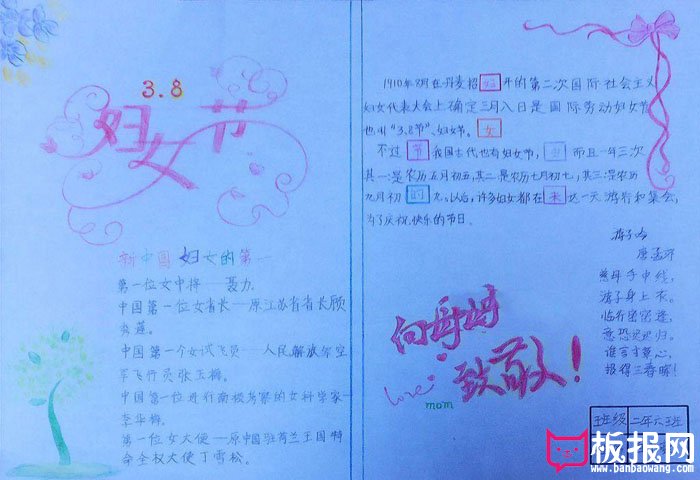 3.8
妇女节
新中国妇女的第一
第一位女中将——聂力.
中国第一位女省长——原江苏省省长顾
秀莲。
中国第一个女试飞员——人民解放军空
军飞行员张玉梅。
中国第一位进行南极考察的女科学家——
李华梅.
第一位女大使——原中国驻荷兰王国特
命全权大使丁雪松。
1910年8月在丹麦招 开的第二次国际社会主义
妇女代表大会上,确定三月八日是国际劳动妇女节
也叫"3.8节"、妇女节。女
不过 节 我国古代也有妇女节, 而且一年三次
其一:是农历五月初五,其二:是农历七月初七,其三:是农历
九月初 的 九。以后,许多妇女都在 来 这一天游行和集会,
为了庆祝快乐的节日。
游子吟
唐孟郊
慈母手中线,
游子身上衣。
临行密密逢,
意恐迟迟归。
谁言寸草心,
报得三春晖!
向母妈
致敬!
love
mom
班级 二年六班
板报网
www.banbaowang.com